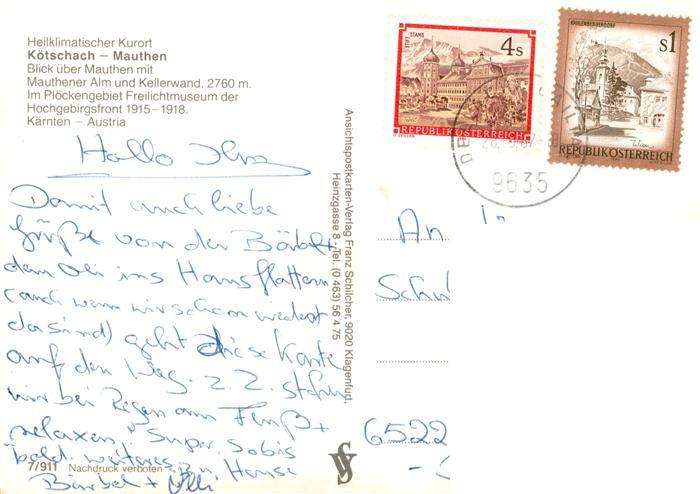 Heilklimatischer Kurort
Kötschach – Mauthen
Blick über Mauthen mit
Mauthener Alm und Kellerwand, 2760 m.
Im Plöckengebiet Freilichtmuseum der
Hochgebirgsfront 1915–1918.
Kärnten – Austria
Hallo
Damit auch liebe
Grüße von der Bärbel +
dem Uli ins Haus flattern
(auch wenn wir schon wieder
da sind) geht diese Karte
auf den Weg. z. Z. stehn
wir bei Regen am Fenster
relaxen. Super. So bis
bald. weiteres zu Hause
Bärbel + Ulli
7/911 Nachdruck verboten
Ansichtspostkarten-Verlag Franz Schilcher, 9020 Klagenfurt,
Heinzgasse 8 - Tel. (0 463) 56 4 75
STIFT STAMS
4s
REPUBLIK ÖSTERREICH
KAHLENBERGERDORF
S1
REPUBLIK ÖSTERREICH
9635
An
in
Sch
6522